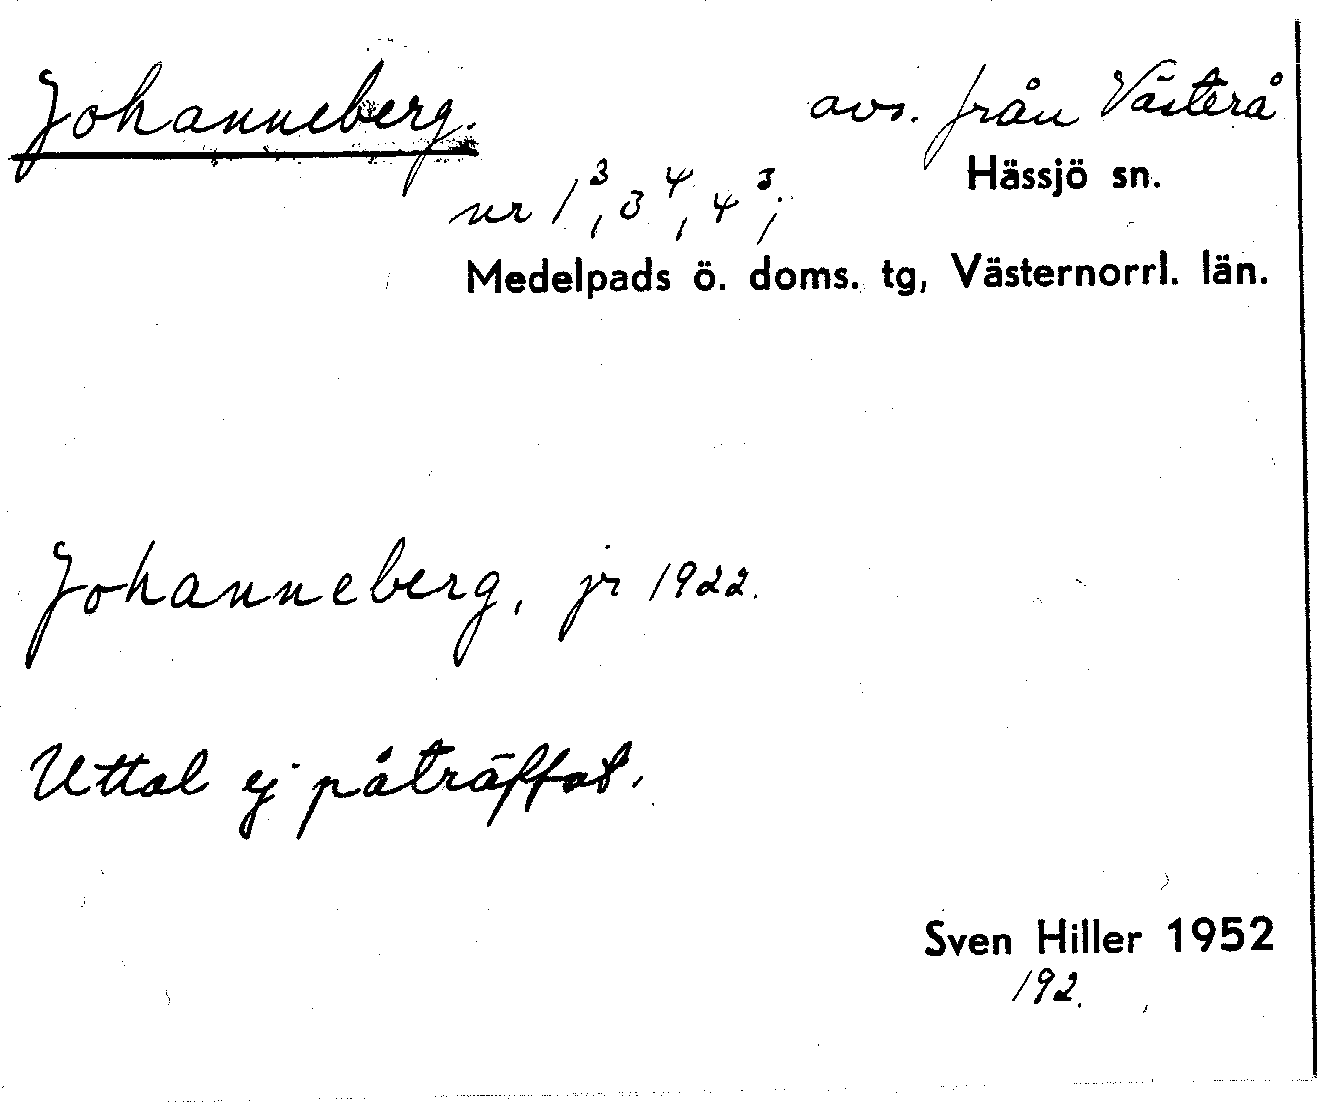 Johanneberg. avs. från Västerå
Hässjö sn.
nr 1³, 3⁴, 4³;
Medelpads ö. doms. tg, Västernorrl. län.
Johanneberg, jr 1922.
Uttal ej påträffat.
Sven Hiller 1952
192.